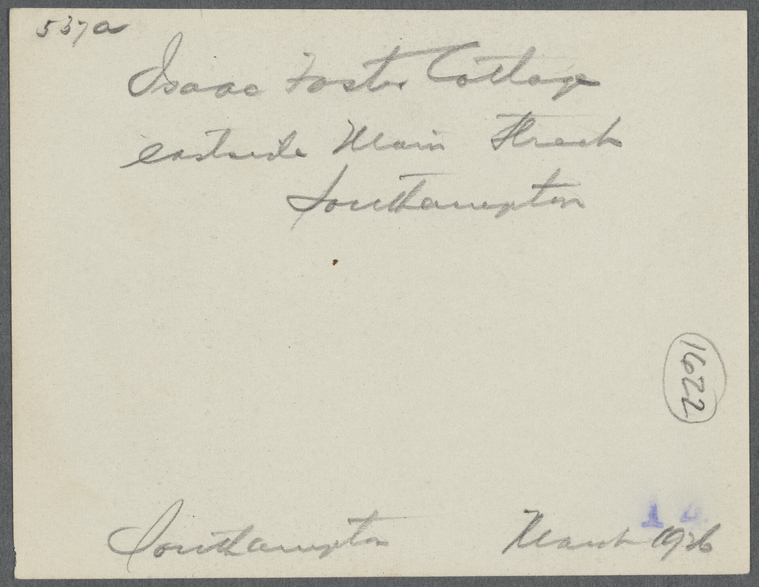 537a
Isaac Foster Cottage
eastside Main Street
Southampton
1622
Southampton March 1926